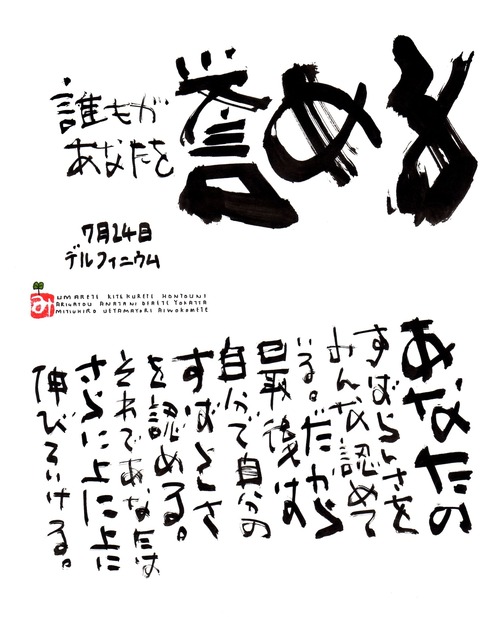 誰もが
あなたを
誉める
7月24日
デルフィニウム
み
UMARETE KITEKURETE HONTOUNI
ARIGATOU ANATANI DEAETE YOKATTA
MITSUHIRO UETAMATORI AIWOKOMETE
あなたの
すばらしさを
みんな認めて
いる。だから
最後は
自分で自分の
すばらしさ
を認める。
それであなたは
さらに上に上に
伸びていける。